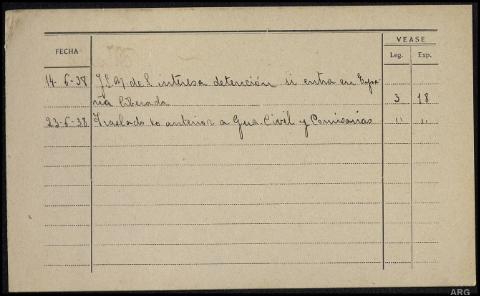 VEASE
FECHA Leg. Exp.
14-6-38 J.S.M. de L. interesa detención si entra en Espa-
ña liberada 3 18
23-6-38 Traslado lo anterior a Gua. Civil y Comisarías " "
ARG